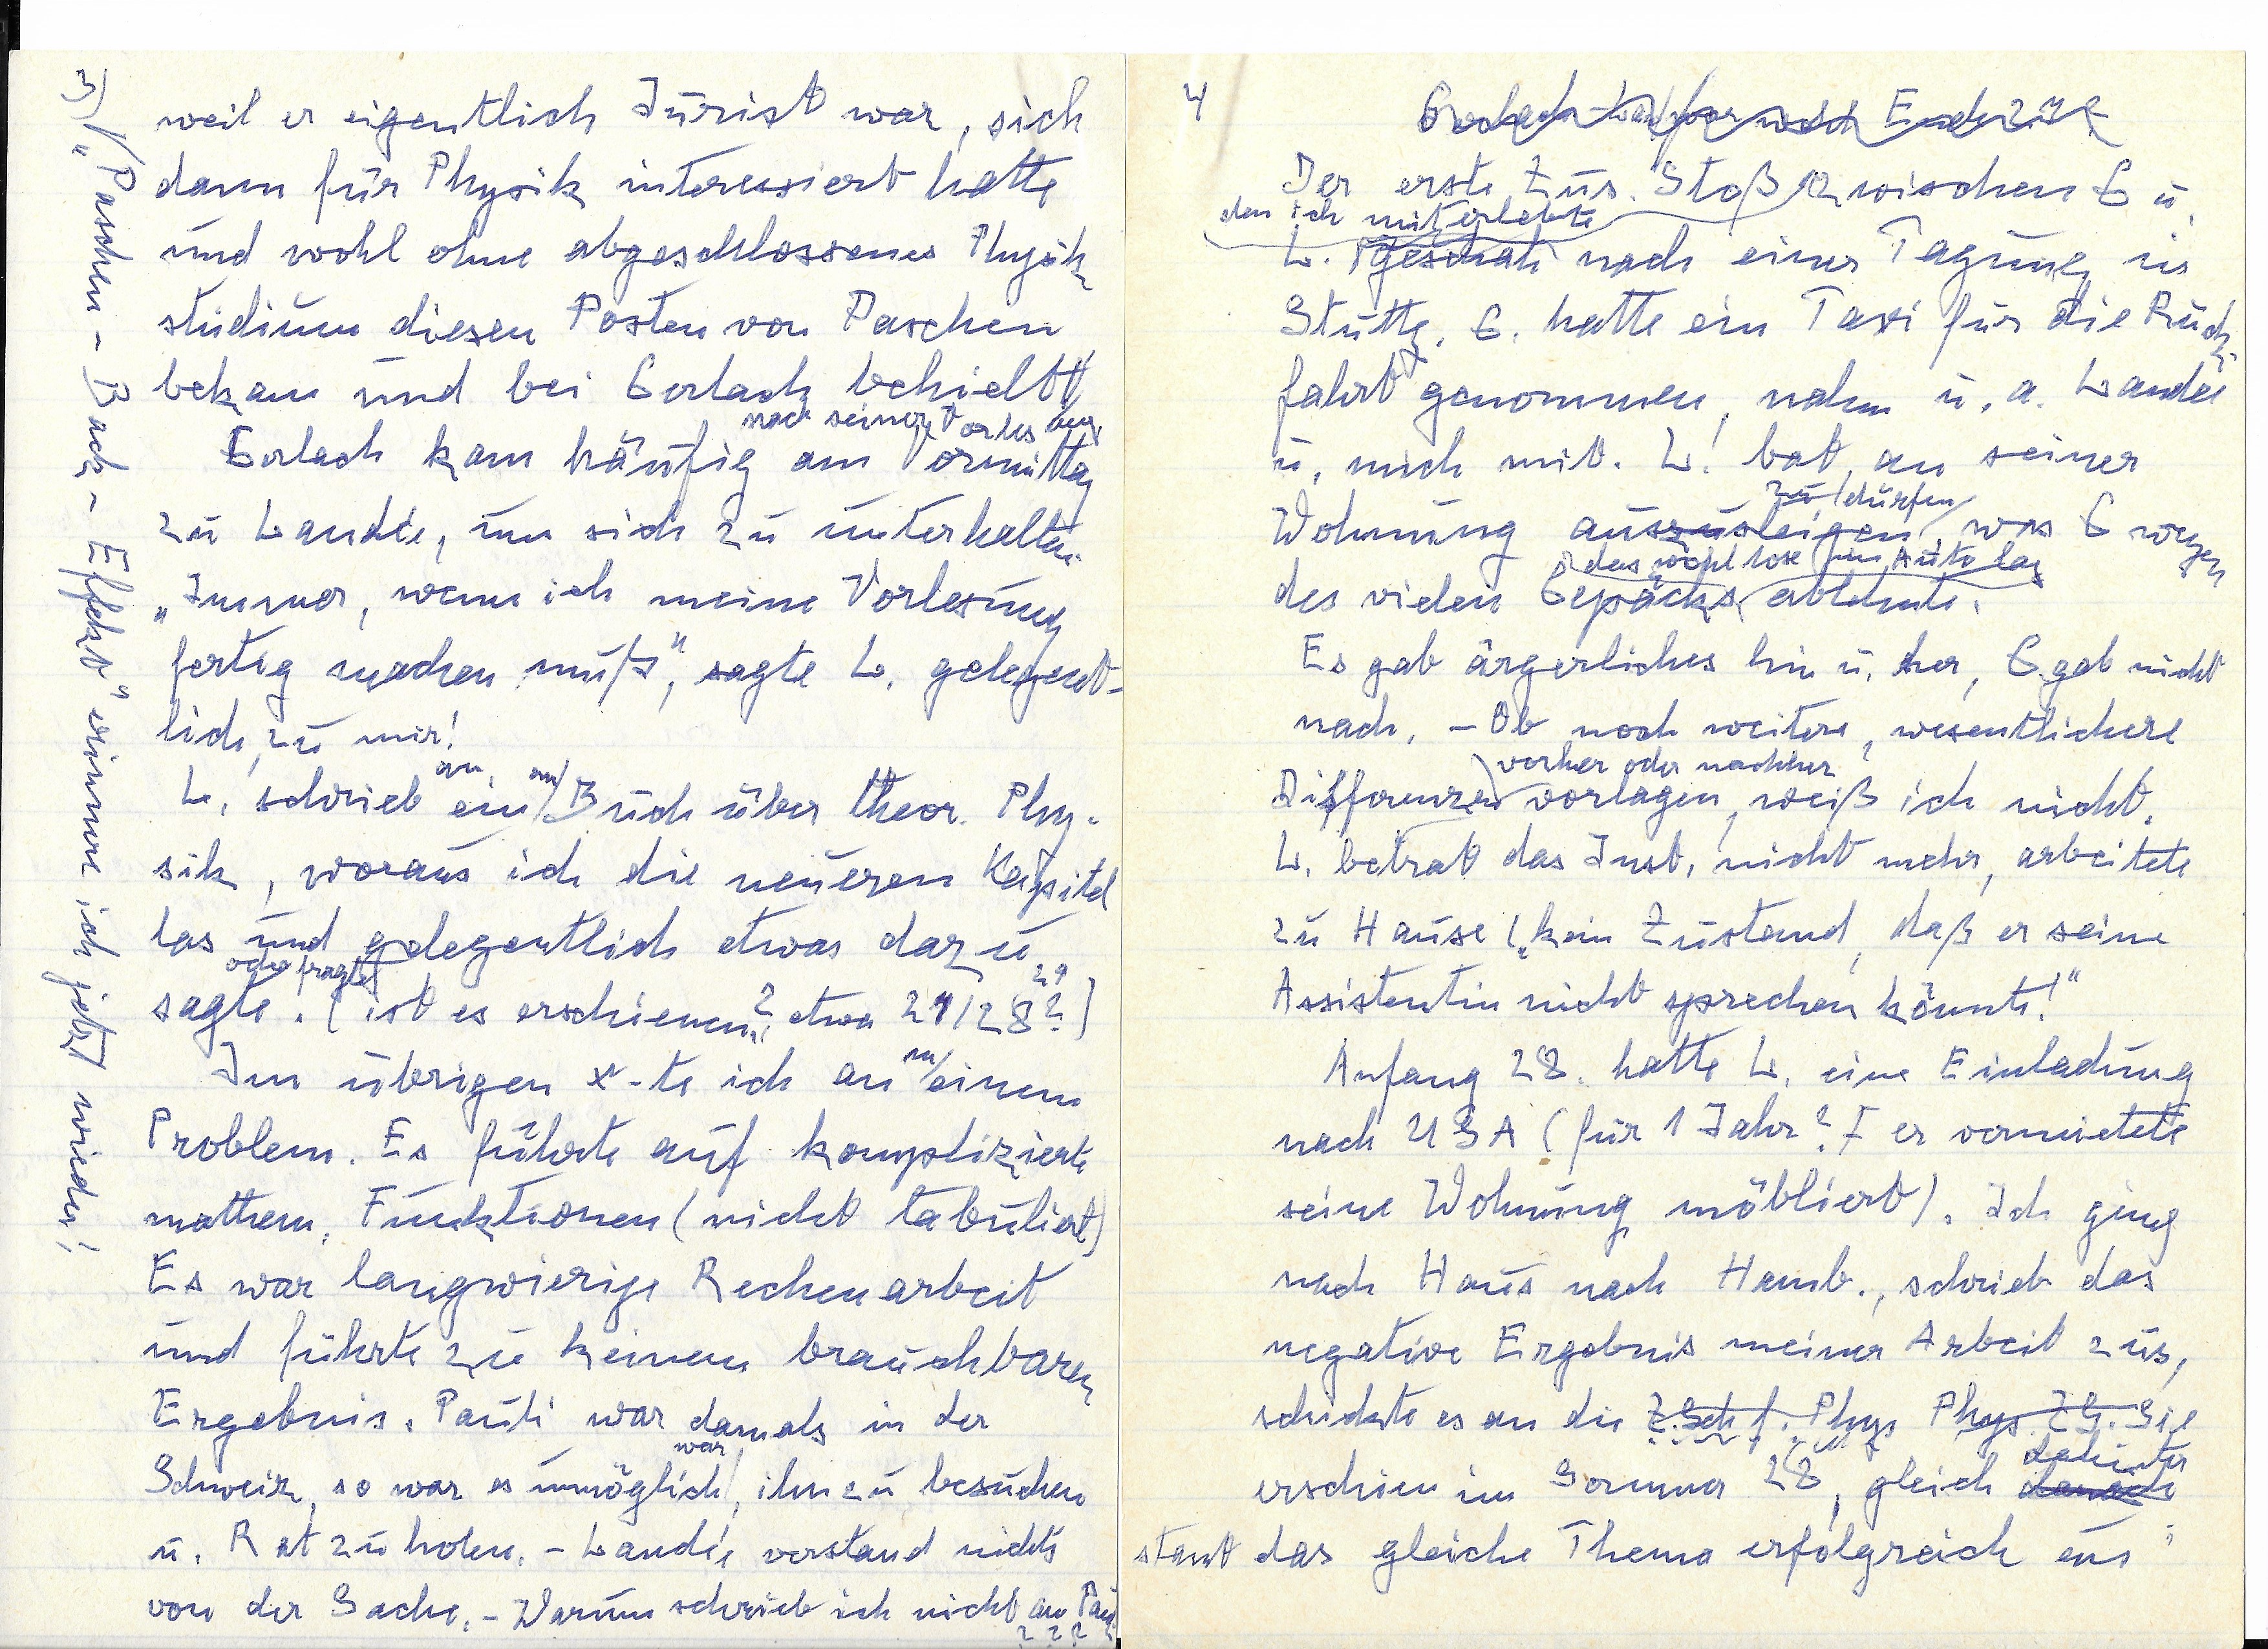 3) „Paschen-Back-Effekt" erinnere ich jetzt wieder!
weil er eigentlich Jurist war, sich
dann für Physik interessiert hatte
und wohl ohne abgeschlossenes Physik
studium diesen Posten von Paschen
bekam und bei Gerlach behielt
nach seiner Vorles ung
Gerlach kam häufig am Vormittag
zu Landé, um sich zu unterhalten
„Immer, wenn ich meine Vorlesung
fertig machen muß", sagte L. gelegent-
lich zu mir!
an, am
L. schrieb ein Buch über theor. Phy-
sik, woraus ich die neueren Kapitel
las und gelegentlich etwas dazu
oder fragte 29
sagte. (ist es erschienen? etwa 27/28?)
Im übrigen x-te ich an einem
Problem. Es führte auf komplizierte
mathem. Funktionen (nicht tabuliert)
Es war langwierige Rechenarbeit
und führte zu keinem brauchbaren
Ergebnis. Pauli war damals in der
war
Schweiz, so war es unmöglich, ihn zu besuchen
u. Rat zu holen. - Landé verstand nichts
von der Sache. - Warum schrieb ich nicht an Pauli
? ? ? ?
4
Der erste Zus. Stoß zwischen G u.
den ich miterlebte
L. geschah nach einer Tagung in
Stuttg. G. hatte ein Taxi für die Rück-
fahrt genommen, nahm u. a. Landé
u. mich mit. L. bat, an seiner
zu dürfen
Wohnung auszusteigen, was G wegen
das wohl lose im Auto lag
des vielen Gepäcks ablehnte.
Es gab ärgerliches hin u. her, G. gab nicht
nach. - Ob noch weitere, wesentlichere
vorher oder nachher
Differenzen vorlagen, weiß ich nicht.
L. betrat das Inst. nicht mehr, arbeitete
zu Hause („kein Zustand, daß er seine
Assistentin nicht sprechen könnte!"
Anfang 28. hatte L. eine Einladung
nach USA (für 1 Jahr? er vermietete
seine Wohnung möbliert). Ich ging
nach Haus nach Hamb., schrieb das
negative Ergebnis meiner Arbeit zus,
schickte es an die Z.Sch f. Phys Phys. ZS. Sie
dahinter
erschien im Sommer 28, gleich danach
stand das gleiche Thema erfolgreich